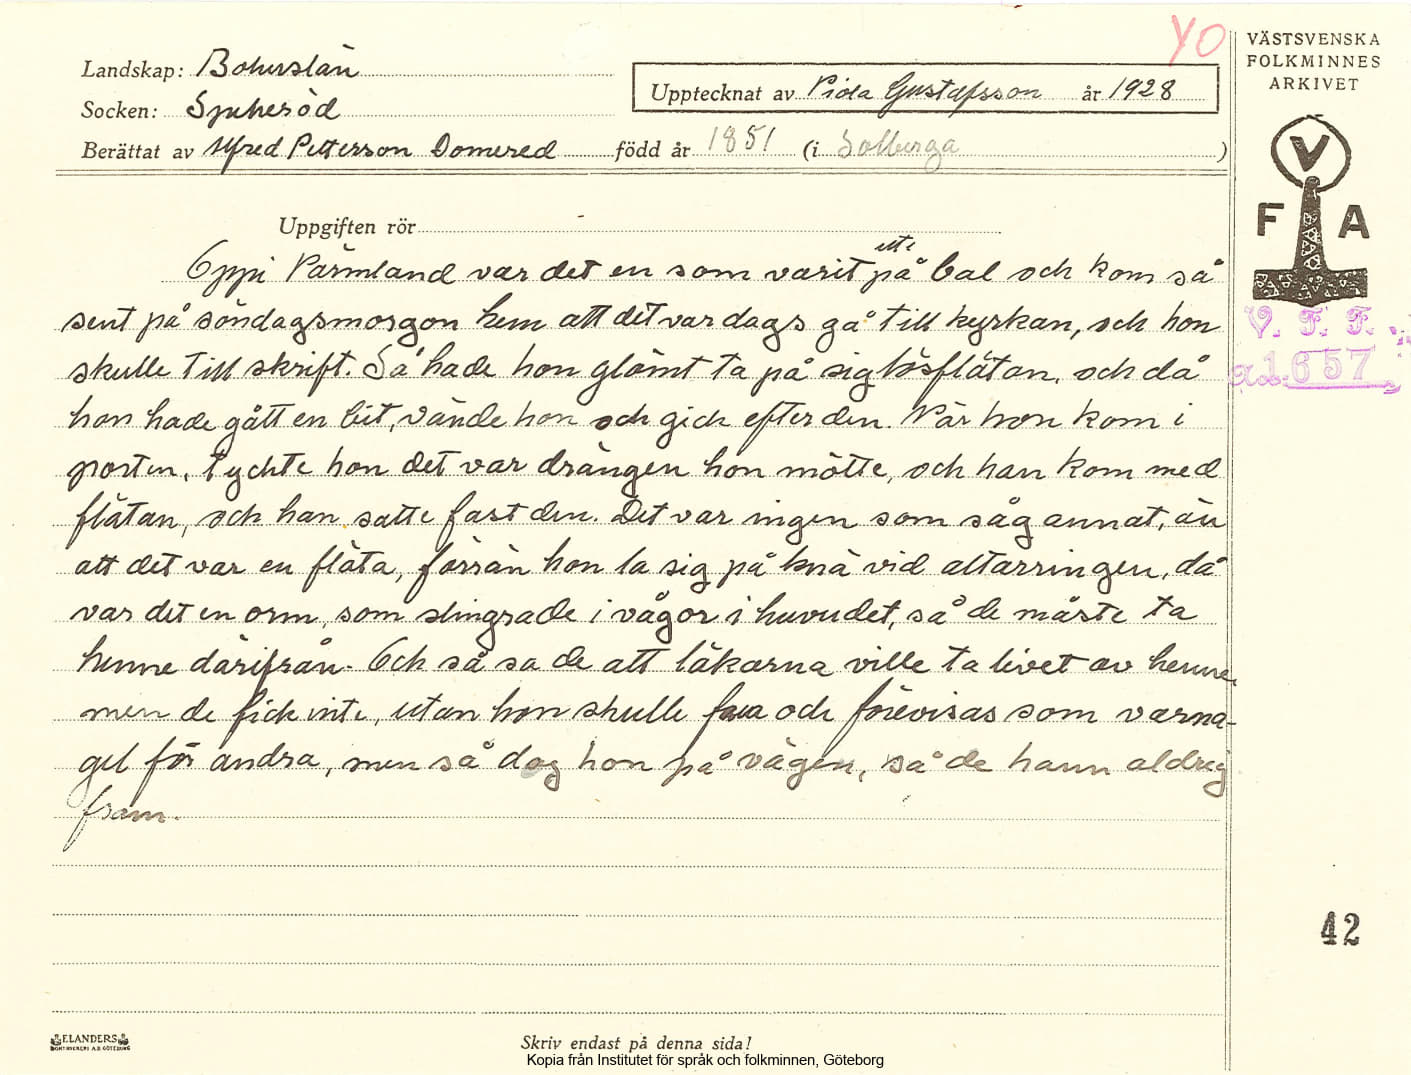 YO
VÄSTSVENSKA
FOLKMINNES
ARKIVET
Landskap: Bohuslän
Uppteckнat av Viola Gustafsson år 1928
Socken: Spekeröd
Berättat av Alfred Petterson Domered född år 1851 (i Solberga)
V
F A
V. F. F.
Acc. 1657
Uppgiften rör
Oppi Värmland var det en som varit ute på bal och kom så
sent på söndagsmorgon hem att det var dags gå till kyrkan, och hon
skulle till skrift. Så hade hon glömt ta på sig lösflätan, och då
hon hade gått en bit, vände hon och gick efter den. När hon kom i
porten, tyckte hon det var drängen hon mötte, och han kom med
flätan, och han satte fast den. Det var ingen som såg annat, än
att det var en fläta, förrän hon la sig på knä vid altarringen, då
var det en orm, som slingrade i vågor i huvudet, så de måste ta
henne därifrån. Och så sa de att läkarna ville ta livet av henne,
men de fick inte, utan hon skulle fara och förevisas som varna-
gel för andra, men så dog hon på vägen, så de hann aldrig
fram.
42
ELANDERS
BOKTRYCKERI A.B. GÖTEBORG
Skriv endast på denna sida!
Kopia från Institutet för språk och folkminnen, Göteborg